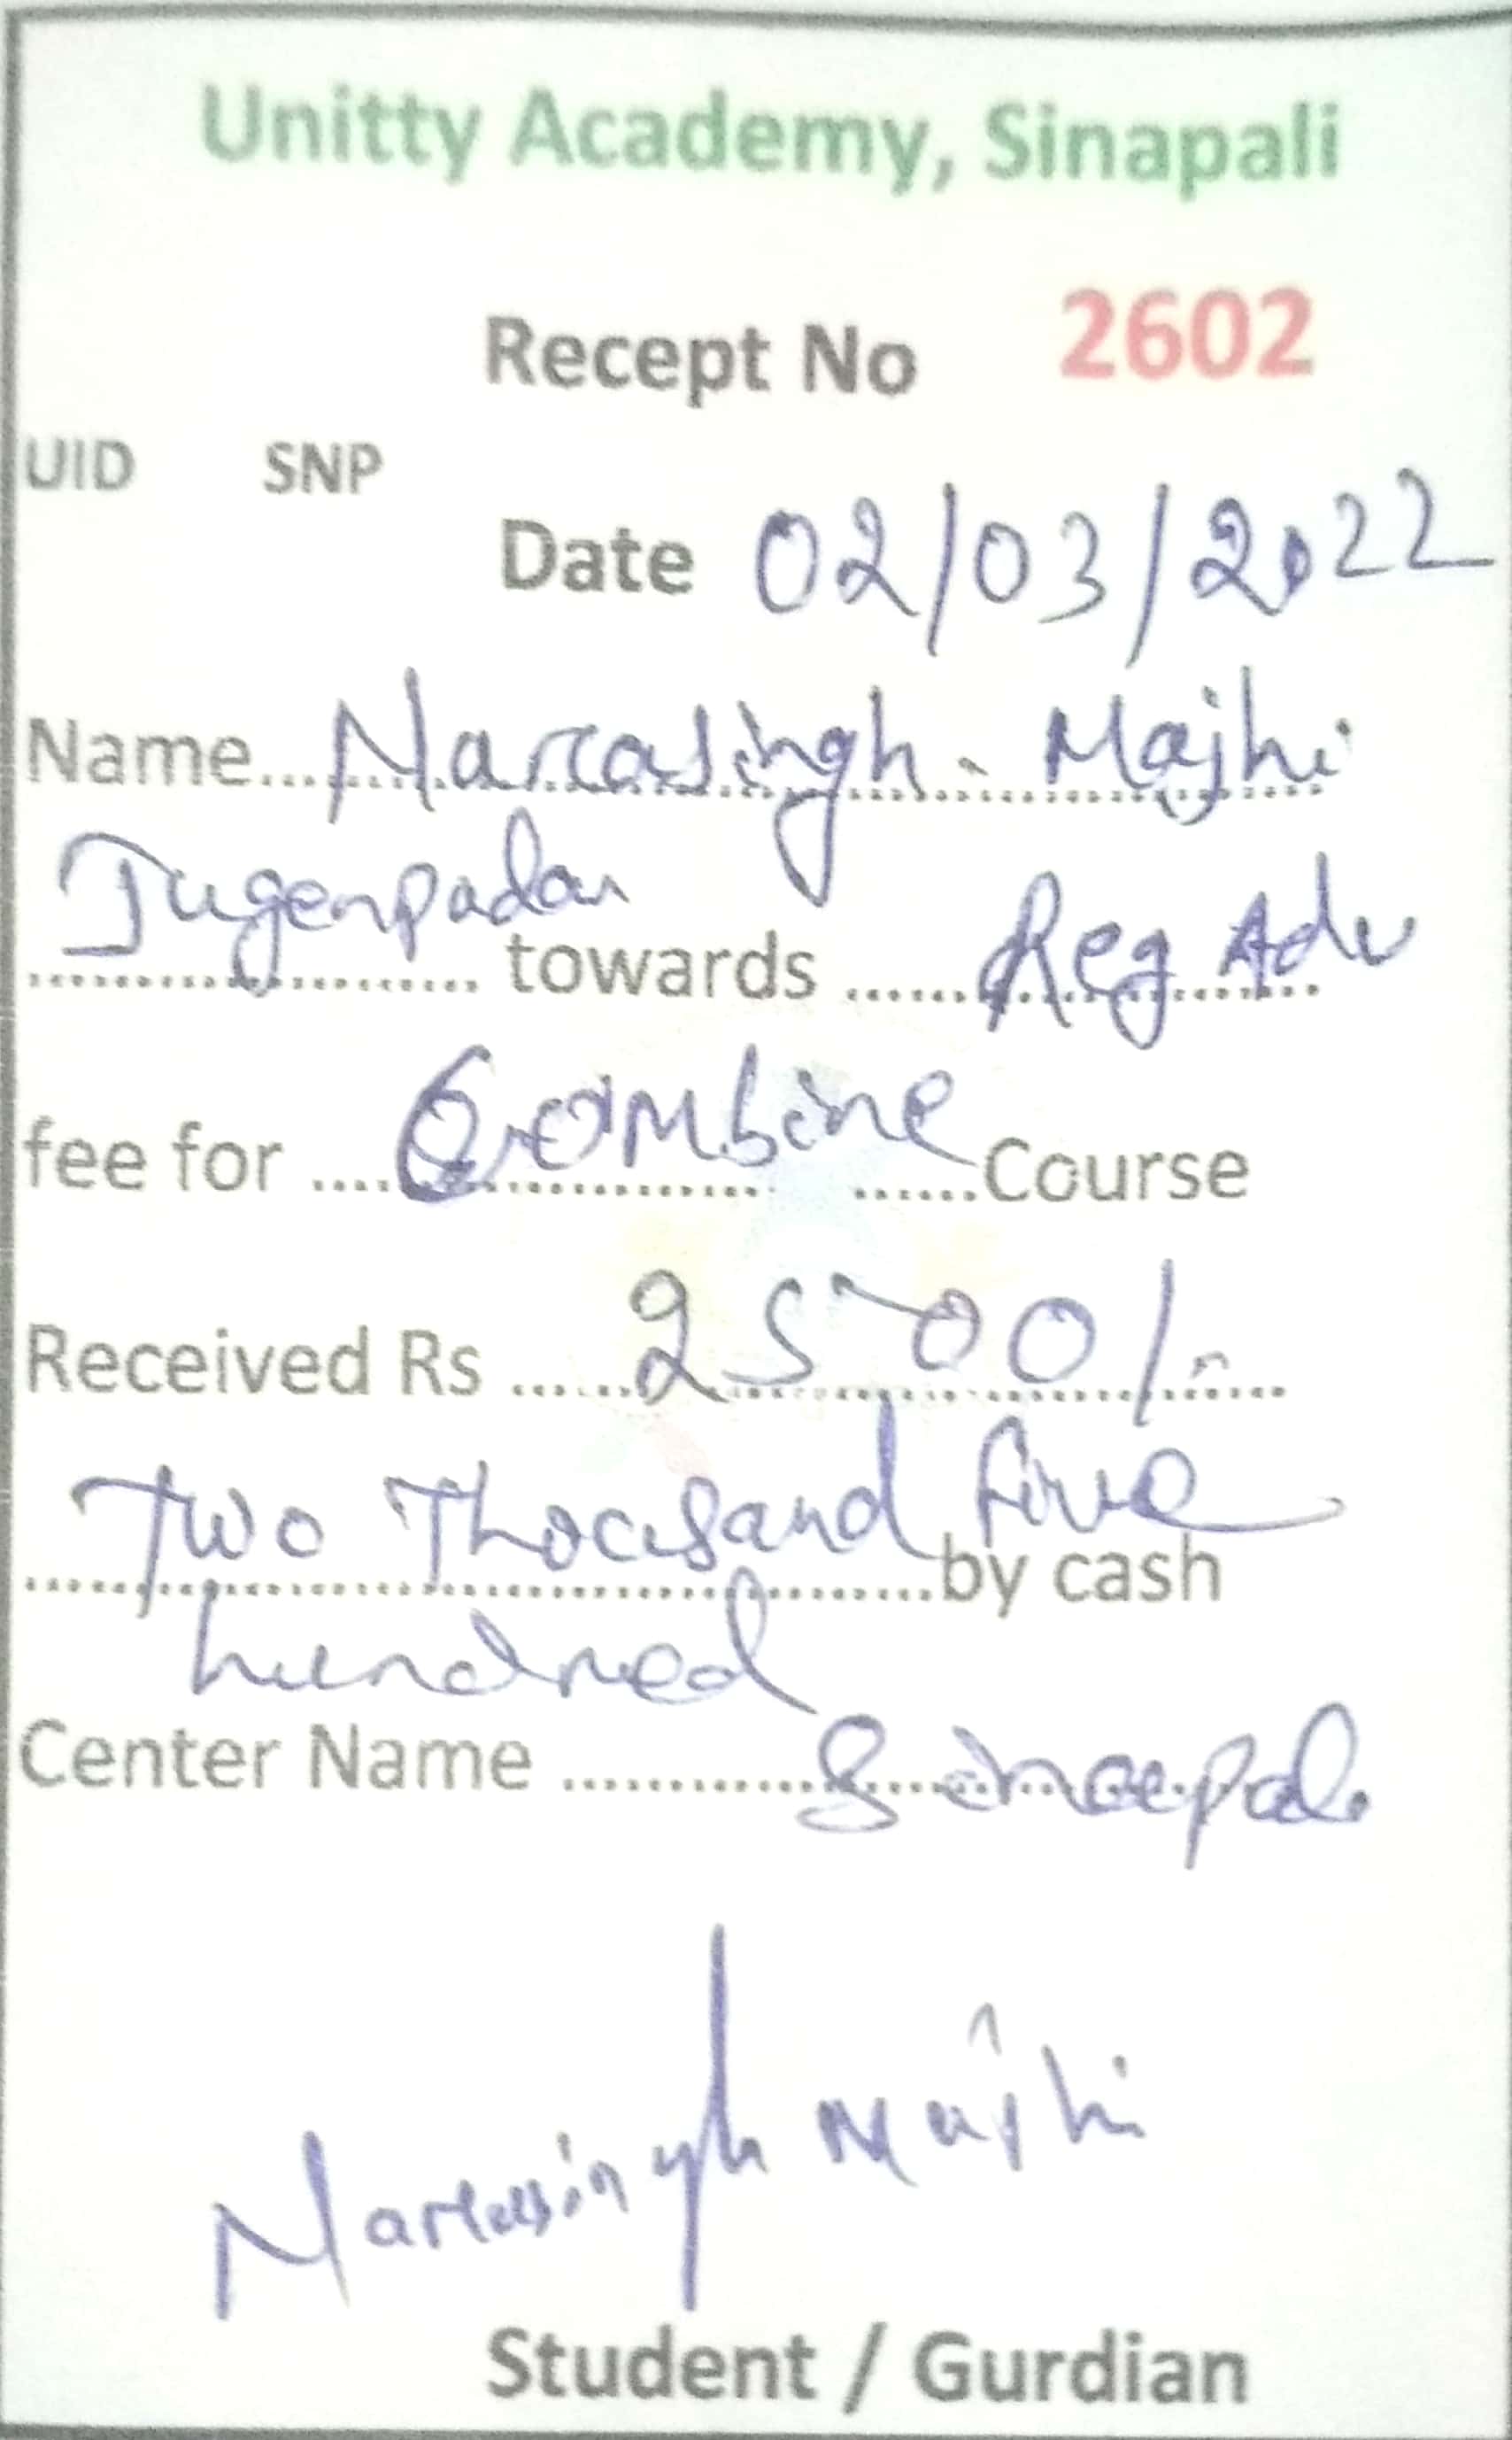 Unitty Academy, Sinapali
Recept No 2602
UID SNP
Date 02/03/2022
Name... Narasingh Majhi
Jugenpadar towards ...... Reg Adv
fee for .... Combine ......Course
Received Rs ...... 2500/-
Two Thousand five by cash
hundred
Center Name ............ Sinapali
Narasingh Majhi
Student / Gurdian